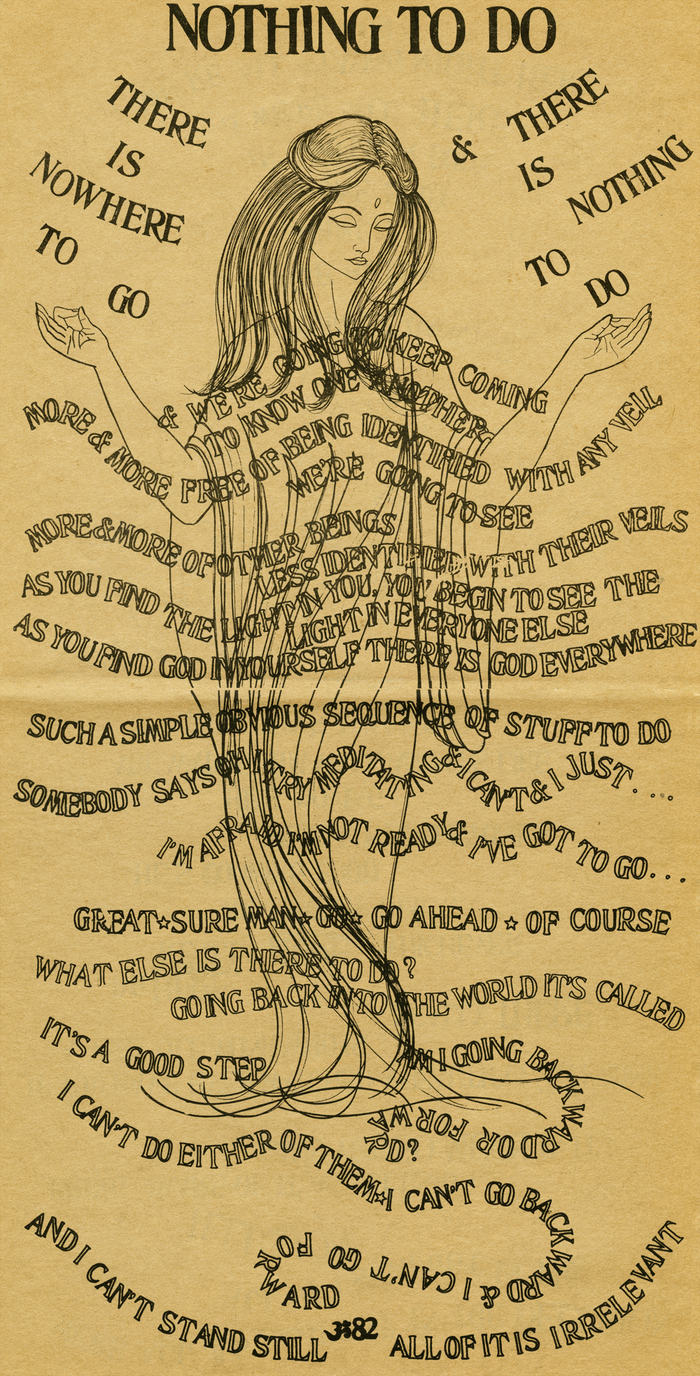 NOTHING TO DO
THERE
IS
NOWHERE
TO GO
& THERE
IS NOTHING
TO DO
& WE'RE GOING TO KEEP COMING
TO KNOW ONE ANOTHER
MORE & MORE FREE OF BEING IDENTIFIED WITH ANY VEIL
WE'RE GOING TO SEE
MORE & MORE OF OTHER BEINGS
LESS IDENTIFIED WITH THEIR VEILS
AS YOU FIND THE LIGHT IN YOU, YOU BEGIN TO SEE THE
LIGHT IN EVERYONE ELSE
AS YOU FIND GOD IN YOURSELF THERE IS GOD EVERYWHERE
SUCH A SIMPLE OBVIOUS SEQUENCE OF STUFF TO DO
SOMEBODY SAYS OH I TRY MEDITATING & I CAN'T & I JUST....
I'M AFRAID I'M NOT READY & I'VE GOT TO GO...
GREAT☆SURE MAN☆GO☆GO AHEAD☆OF COURSE
WHAT ELSE IS THERE TO DO?
GOING BACK INTO THE WORLD IT'S CALLED
IT'S A GOOD STEP
AM I GOING BACKWARD OR FORWARD?
I CAN'T DO EITHER OF THEM☆I CAN'T GO BACKWARD & I CAN'T GO FORWARD
AND I CAN'T STAND STILL
ॐ82
ALL OF IT IS IRRELEVANT